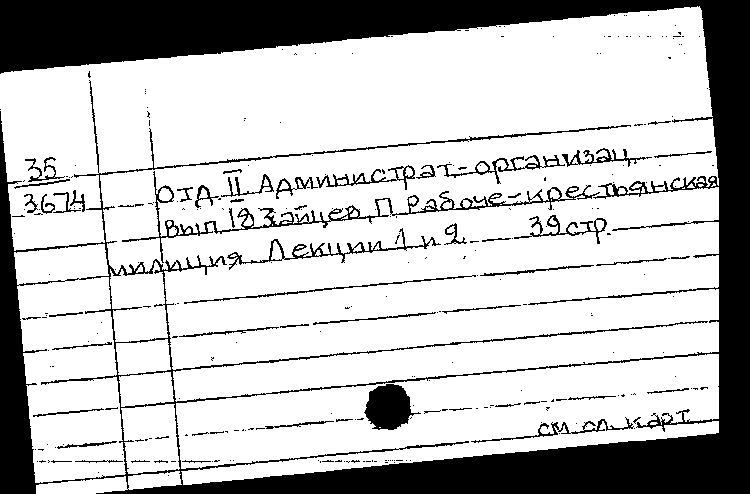 35
3674
Отд II. Административ-организац.
Вып 18 Зайцев, П Рабоче-крестьянская
милиция. Лекции 1 и 2. 39 стр.
см. сл. карт.